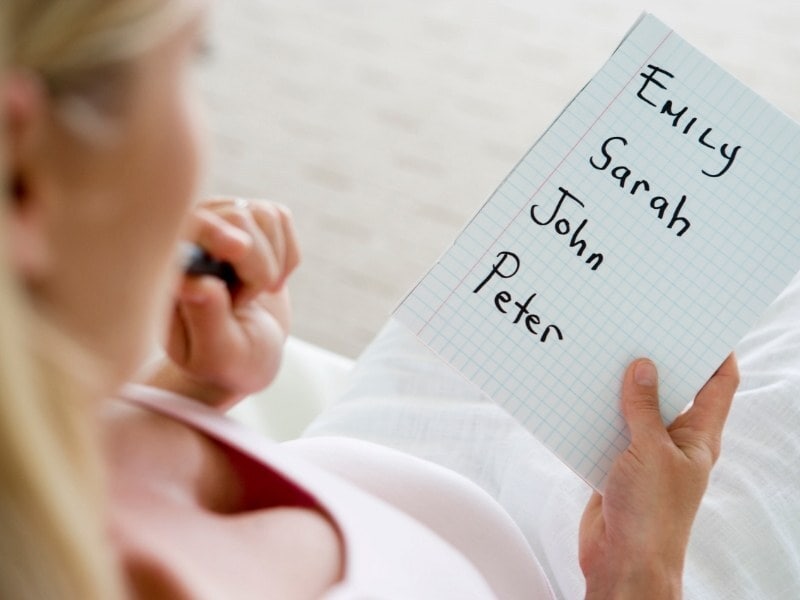 Emily
Sarah
John
Peter